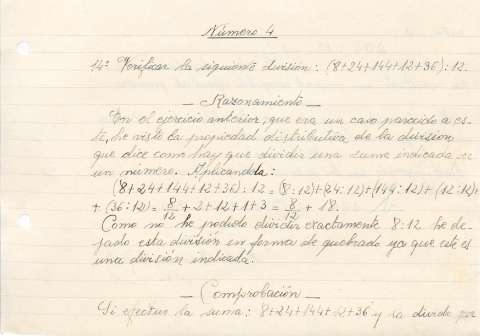 Número 4
14º Verificar la siguiente división: (8+24+144+12+36):12.
— Razonamiento —
En el ejercicio anterior, que era un caso parecido a es-
te, he visto la propiedad distributiva de la división
que dice como hay que dividir una suma indicada
un número. Aplicandola:
(8+24+144+12+36):12=(8:12)+(24:12)+(144:12)+(12:12)+
+(36:12)=8/12+2+12+1+3=8/12+18.
Como no he podido dividir exactamente 8:12 he de-
jado esta división en forma de quebrado ya que este es
una división indicada.
— Comprobación —
Si efectuo la suma: 8+24+144+12+36 y la divido por